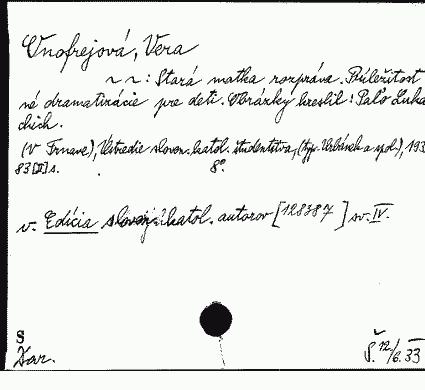 Onofrejová, Vera
~ ~ : Stará matka rozpráva. Príležitost
né dramatizácie pre deti. Obrázky kreslil: Paľo Luka
chích.
(V Trnave), Ústredie sloven. katol. študentstva, (typ. Urbánek a spol.), 193
83 [II] s. 8°.
v. Edícia katol. autorov [128387] sv. IV.
S
Dar. Š. 12/6. 33